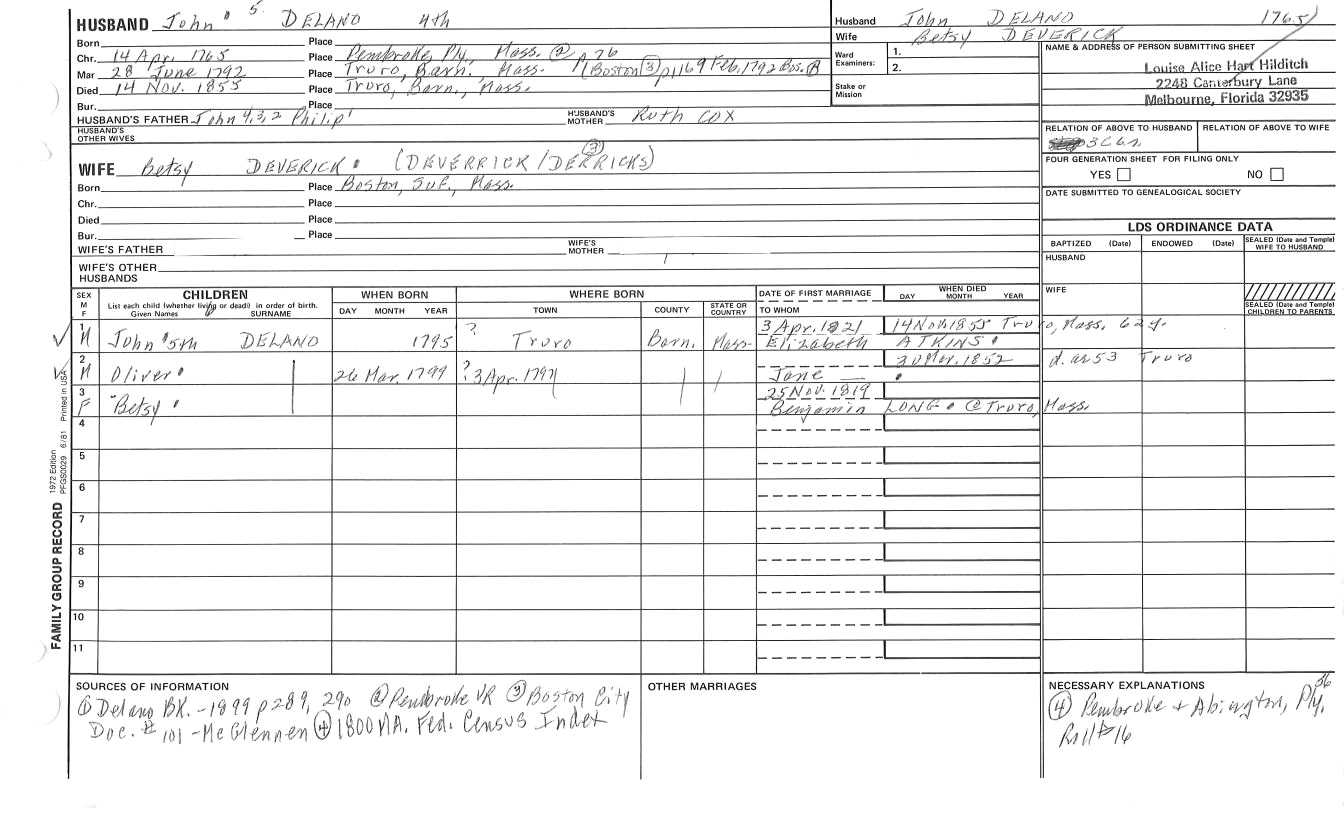 HUSBAND John 5. DELANO 4th
Born Place
Chr. 14 Apr. 1765 Place Pembroke, Ply, Mass. ② p 76
Mar 28 June 1792 Place Truro, Barn., Mass. (Boston ③ p 169 Feb, 1792 Bos.
Died 14 Nov. 1855 Place Truro, Barn., Mass.
Bur. Place
HUSBAND'S FATHER John 4,3,2 Philip' HUSBAND'S MOTHER Ruth COX
HUSBAND'S OTHER WIVES
WIFE Betsy DEVERICK (DEVERRICK/DERRICKS) ③
Born Place Boston, Suf., Mass.
Chr. Place
Died Place
Bur. Place
WIFE'S FATHER WIFE'S MOTHER
WIFE'S OTHER HUSBANDS
Husband John DELANO 1765)
Wife Betsy DEVERICK
Ward Examiners: 1.
2.
Stake or Mission
NAME & ADDRESS OF PERSON SUBMITTING SHEET
Louise Alice Hart Hilditch
2248 Canterbury Lane
Melbourne, Florida 32935
RELATION OF ABOVE TO HUSBAND RELATION OF ABOVE TO WIFE
FOUR GENERATION SHEET FOR FILING ONLY
YES NO
DATE SUBMITTED TO GENEALOGICAL SOCIETY
LDS ORDINANCE DATA
BAPTIZED (Date) ENDOWED (Date) SEALED (Date and Temple) WIFE TO HUSBAND
HUSBAND
WIFE
SEALED (Date and Temple) CHILDREN TO PARENTS
SEX M F CHILDREN WHEN BORN WHERE BORN DATE OF FIRST MARRIAGE WHEN DIED
List each child (whether living or dead) in order of birth.
Given Names SURNAME DAY MONTH YEAR TOWN COUNTY STATE OR COUNTRY TO WHOM DAY MONTH YEAR
3 Apr. 1821 14 Nov. 1855 Truro, Mass. 62y.
1 M John 5th DELANO 1795 ? Truro Barn. Mass. Elizabeth ATKINS
30 Mar. 1852 d. as 53 Truro
2 M Oliver 26 Mar. 1799 ? 3 Apr. 1797 Jane
25 Nov. 1819
3 F "Betsy Benjamin LONG @ Truro, Mass.
4
5
6
7
8
9
10
11
FAMILY GROUP RECORD
1972 Edition PFGS0029 6/81 Printed in USA
SOURCES OF INFORMATION
① Delano BK. - 1899 p 289, 290 ② Pembroke VR ③ Boston City
Doc. # 101 - McGlennen ④ 1800 MA. Fed. Census Index
OTHER MARRIAGES
NECESSARY EXPLANATIONS
④ Pembroke + Abington, Ply. 36
Roll # 16